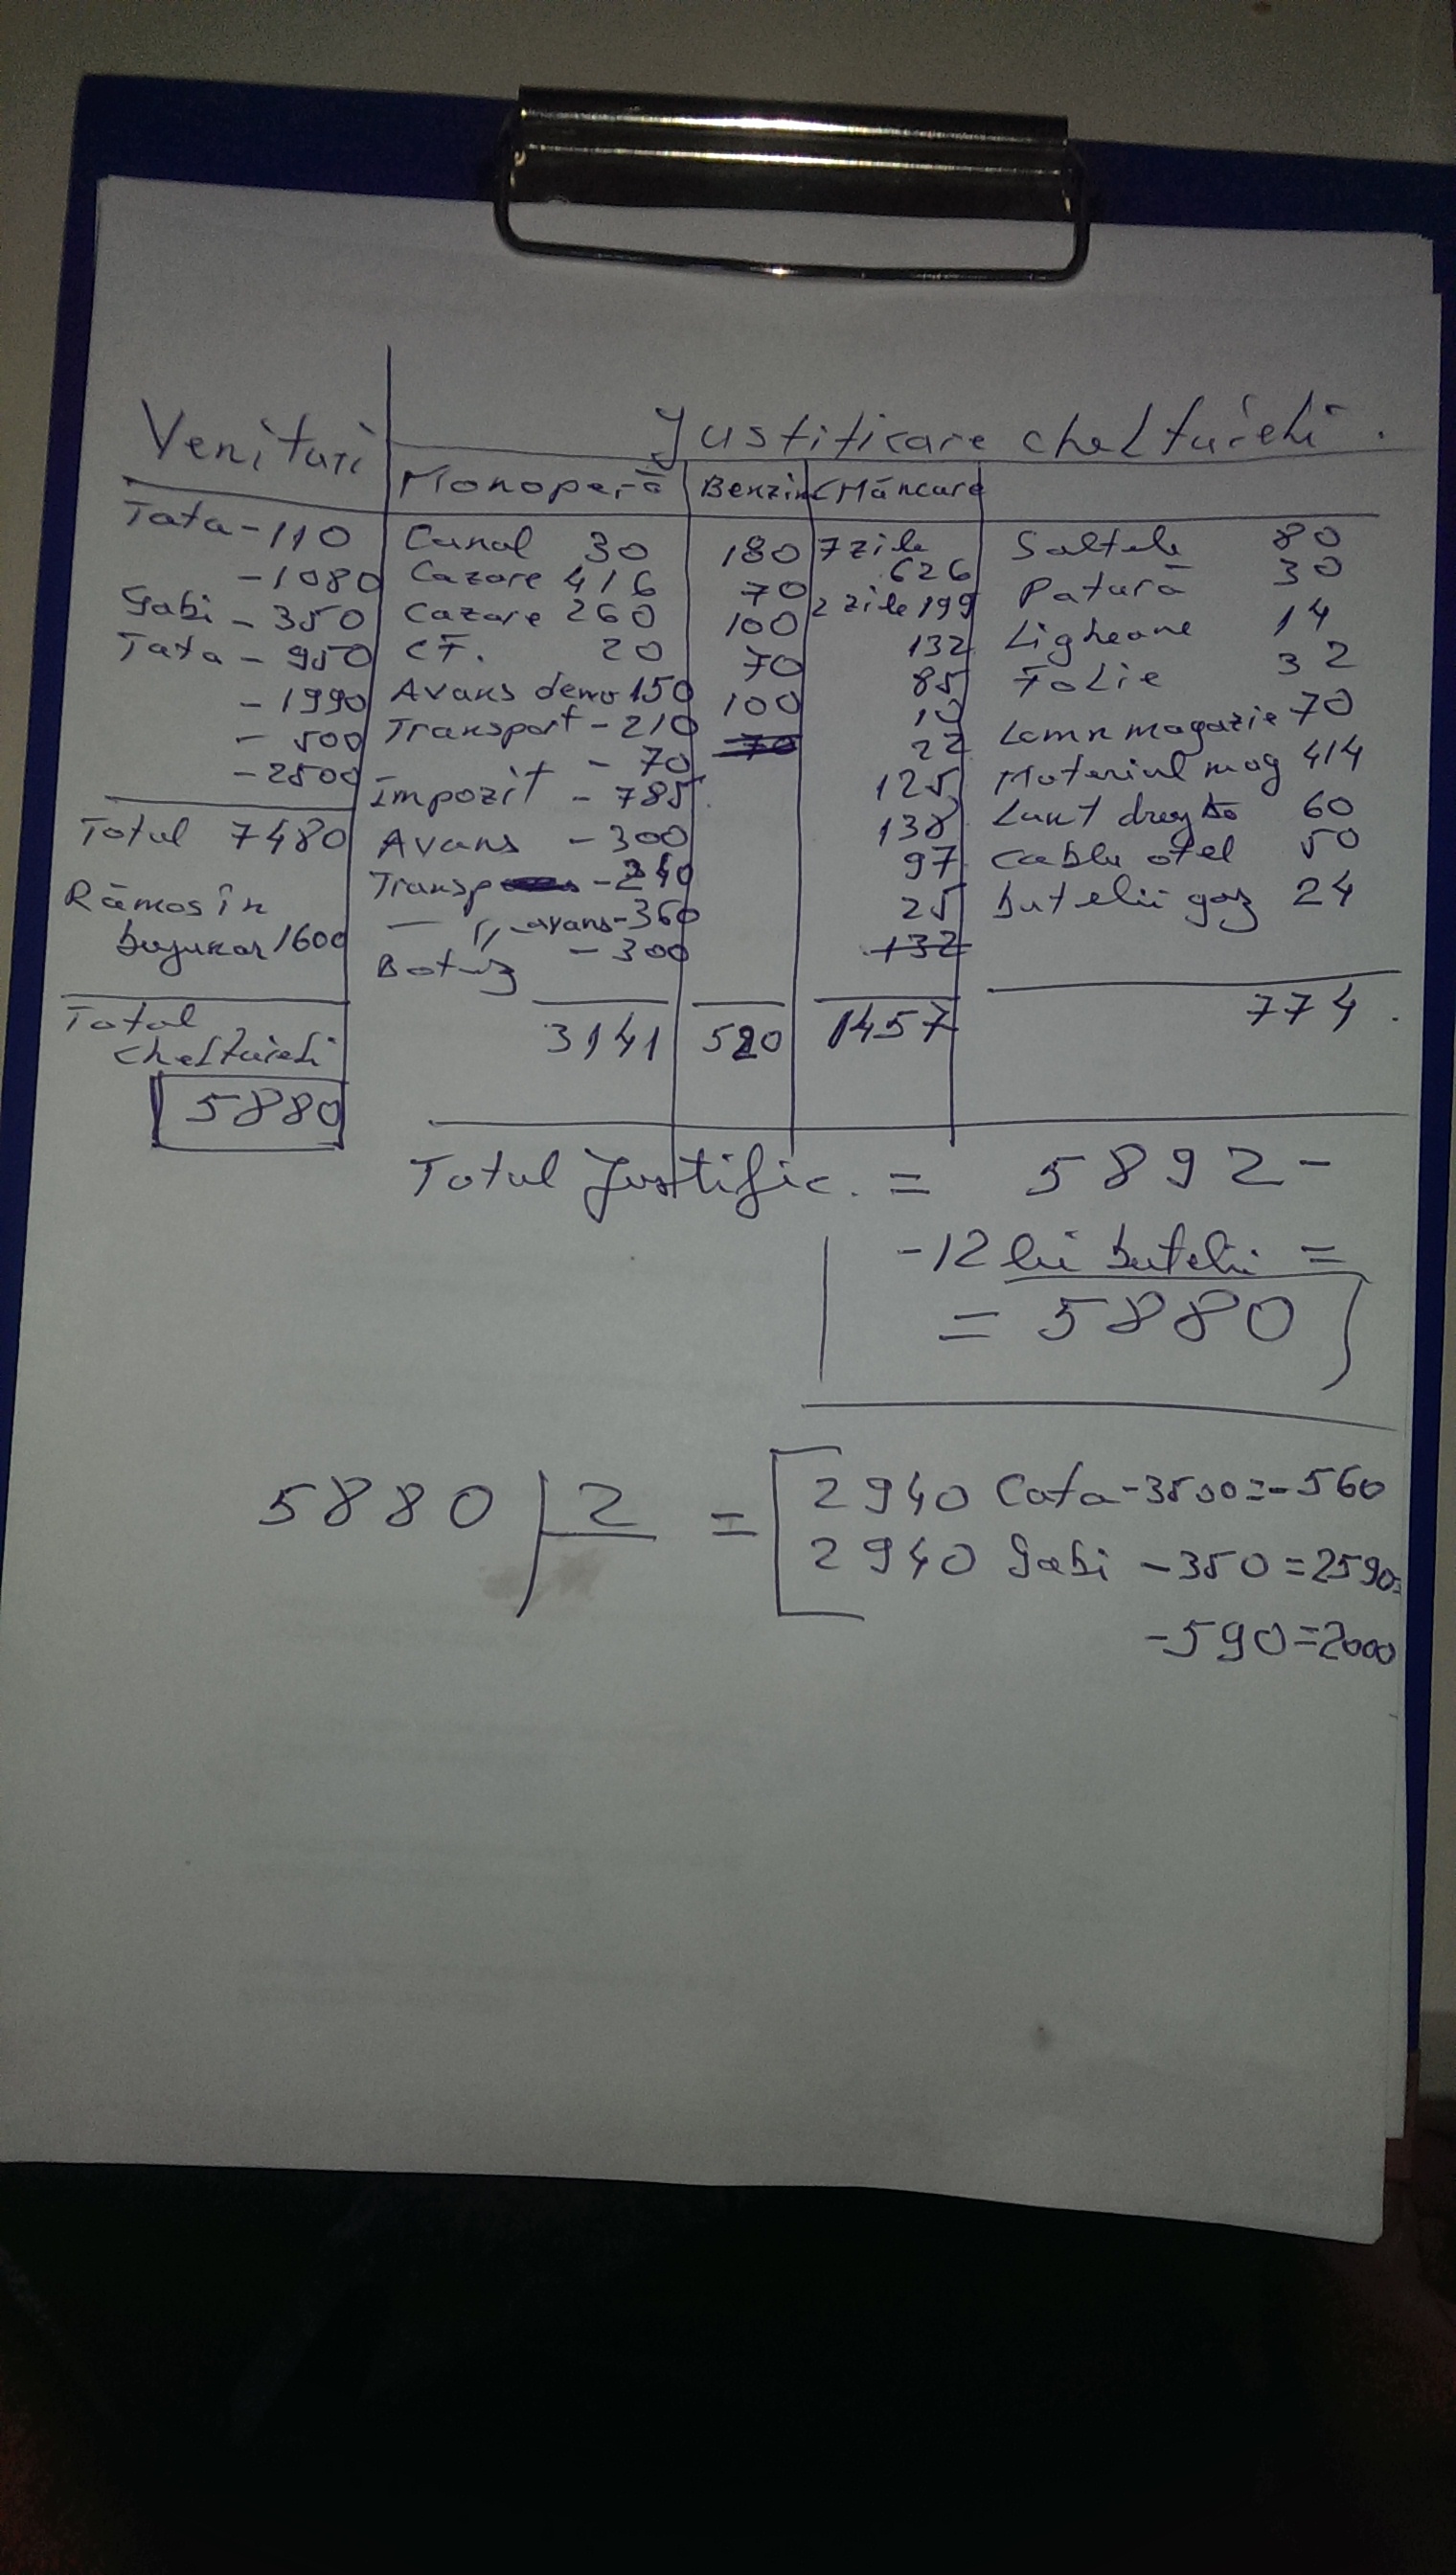 Venituri
Justificare cheltuieli.
Monoperă
Benzină
Mâncare
Tata - 110
- 1080
Gabi - 350
Tata - 950
- 1990
- 500
- 2500
Total 7480
Rămas în
buzunar 1600
Total
cheltuieli
5880
Canal 30
Cazare 416
Cazare 260
CF. 20
Avans demo 150
Transport - 210
- 70
Impozit - 785
Avans - 300
Transp - 240
— 〃 - avans - 360
Botez - 300
3141
180
70
100
70
100
70
520
7 zile
626
2 zile 199
132
85
10
22
125
138
97
25
132
1457
Saltele 80
Patură 30
Ligheane 14
Folie 32
Lemn magazie 70
Material mag 414
Lanț 60
Cablu otel 50
butelii gaz 24
774.
Total Justific. = 5892 -
- 12 lei butelii =
= 5880
5880 | 2 = 2940 Cata - 3500 = - 560
2940 Gabi - 350 = 2590 =
- 590 = 2000